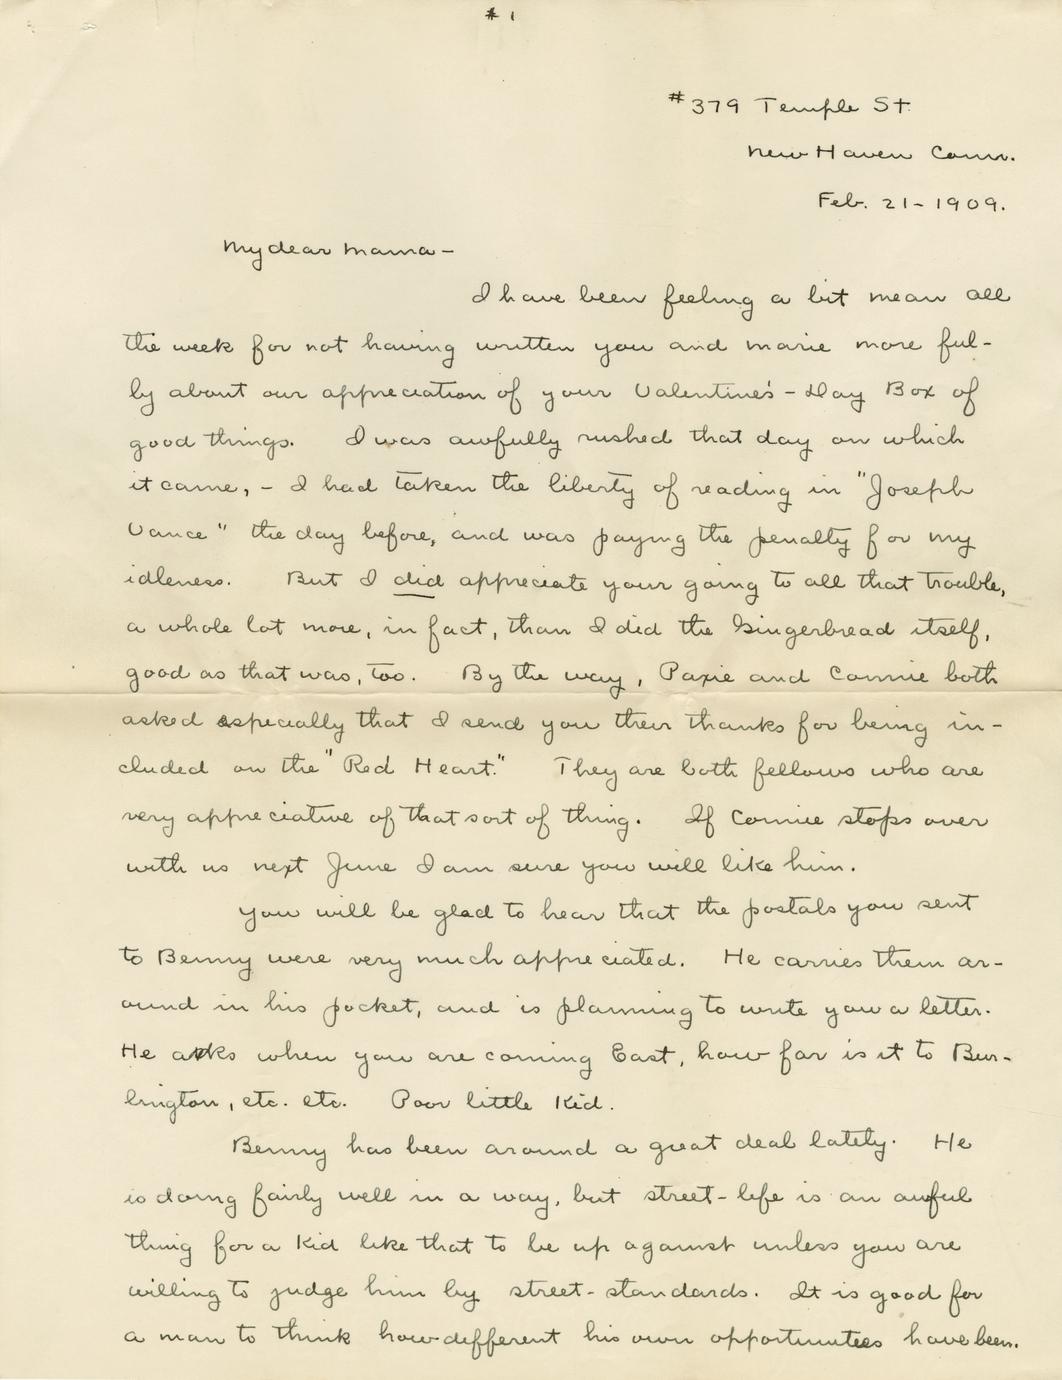 # 1
#379 Temple St.
New Haven Conn.
Feb. 21-1909.
My dear Mama-
I have been feeling a bit mean all
the week for not having written you and Marie more ful-
ly about our appreciation of your Valentine's-Day Box of
good things. I was awfully rushed that day on which
it came, - I had taken the liberty of reading in "Joseph
Vance" the day before, and was paying the penalty for my
idleness. But I did appreciate your going to all that trouble,
a whole lot more, in fact, than I did the Gingerbread itself,
good as that was, too. By the way, Paxie and Connie both
asked especially that I send you their thanks for being in-
cluded on the "Red Heart." They are both fellows who are
very appreciative of that sort of thing. If Connie stops over
with us next June I am sure you will like him.
You will be glad to hear that the postals you sent
to Benny were very much appreciated. He carries them ar-
ound in his pocket, and is planning to write you a letter.
He asks when you are coming East, how far is it to Bur-
lington, etc. etc. Poor little Kid.
Benny has been around a great deal lately. He
is doing fairly well in a way, but street-life is an awful
thing for a Kid like that to be up against unless you are
willing to judge him by street-standards. It is good for
a man to think how different his own opportunities have been.